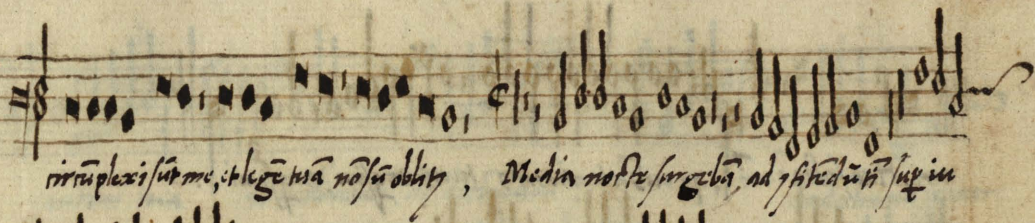 circūplexi sūt me, et legē tuā nō sū oblitꝰ, Media nocte surgebā, ad ꝯfitēdū tī suꝑ iu